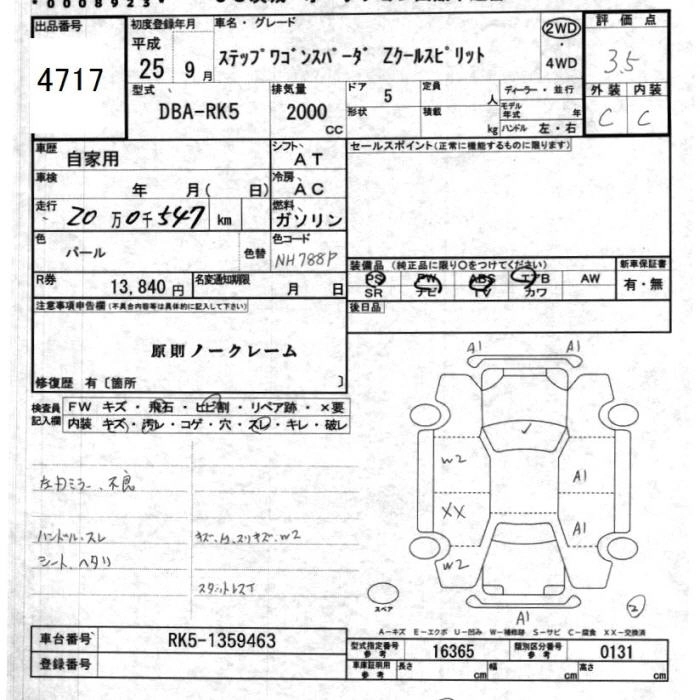 出品番号
4717
初度登録年月
平成
25 9 月
車名・グレード
ステップワゴンスパーダ Zクールスピリット
2WD
・
4WD
評価点
3.5
外装 内装
C C
型式
DBA-RK5
排気量
2000
CC
ドア 5
形状
定員 人
積載 kg
ディーラー・並行
モデル年式 年
ハンドル 左・右
車歴
自家用
シフト
AT
セールスポイント(正常に機能するものに限ります)
車検
年 月( 日)
冷房
AC
走行
20 万 0 千 547 km
燃料
ガソリン
色
パール
色替
色コード
NH788P
装備品 (純正品に限り○をつけてください)
新車保証書
PS PW ABS エアB AW
SR ナビ TV カワ
有・無
R券
13,840 円
名変通知期限
月 日
後日品
注意事項申告欄(不具合内容等は具体的に記入して下さい)
原則ノークレーム
修復歴 有〔箇所 〕
検査員記入欄
FW キズ・飛石・ヒビ割・リペア跡・×要
内装 キズ・汚レ・コゲ・穴・スレ・キレ・破レ
不良
ハンドル・スレ
シート、ヘタリ
A1 A1
W2
A1
XX
A1
W2
A1
スペア
2
A-キズ E-エクボ U-凹み W-補修跡 S-サビ C-腐食 XX-交換済
車台番号
RK5-1359463
登録番号
型式指定番号
参考
16365
類別区分番号
参考
0131
車庫証明用
参考
長さ cm 幅 cm 高さ cm